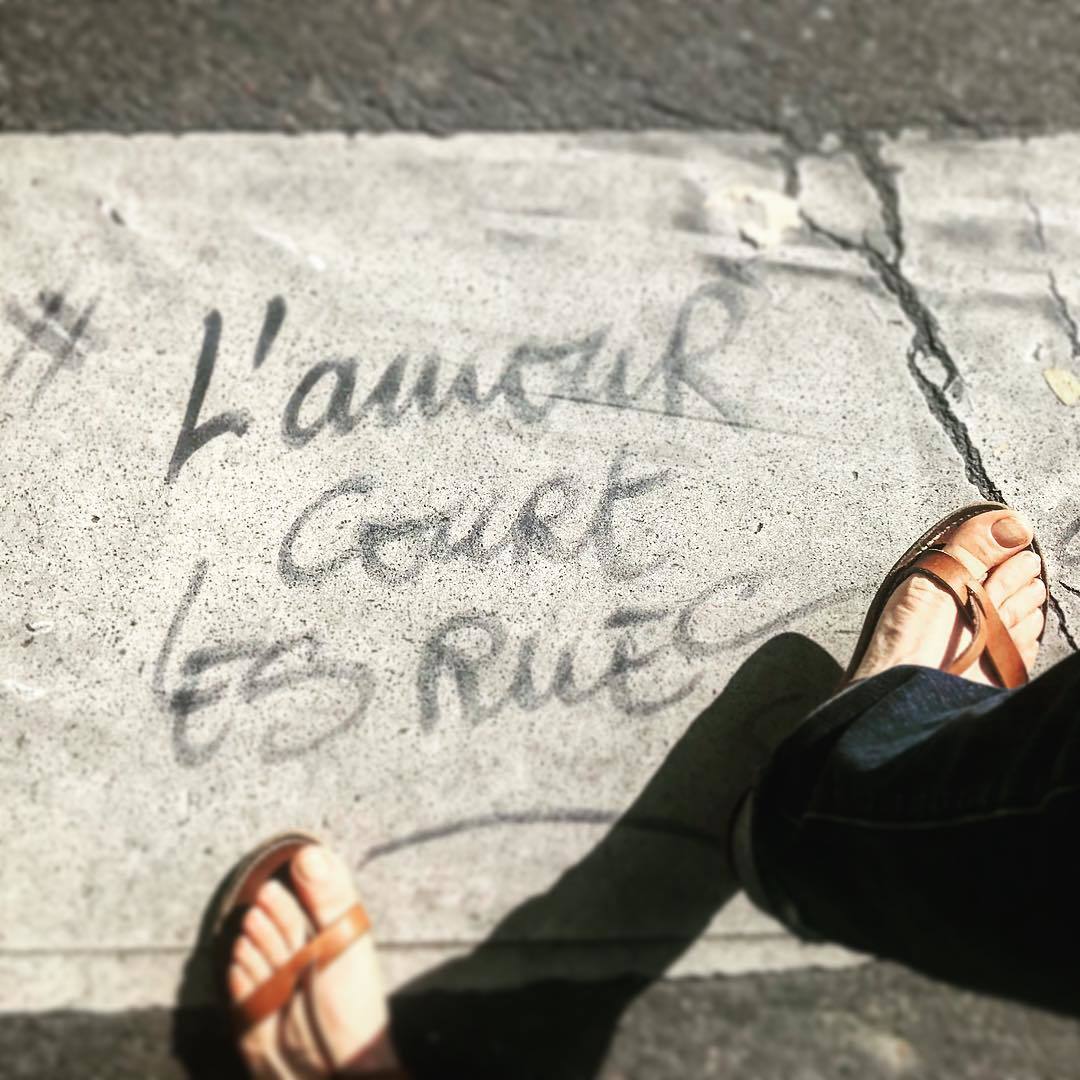 # L'amouR
couRt
LES RuES